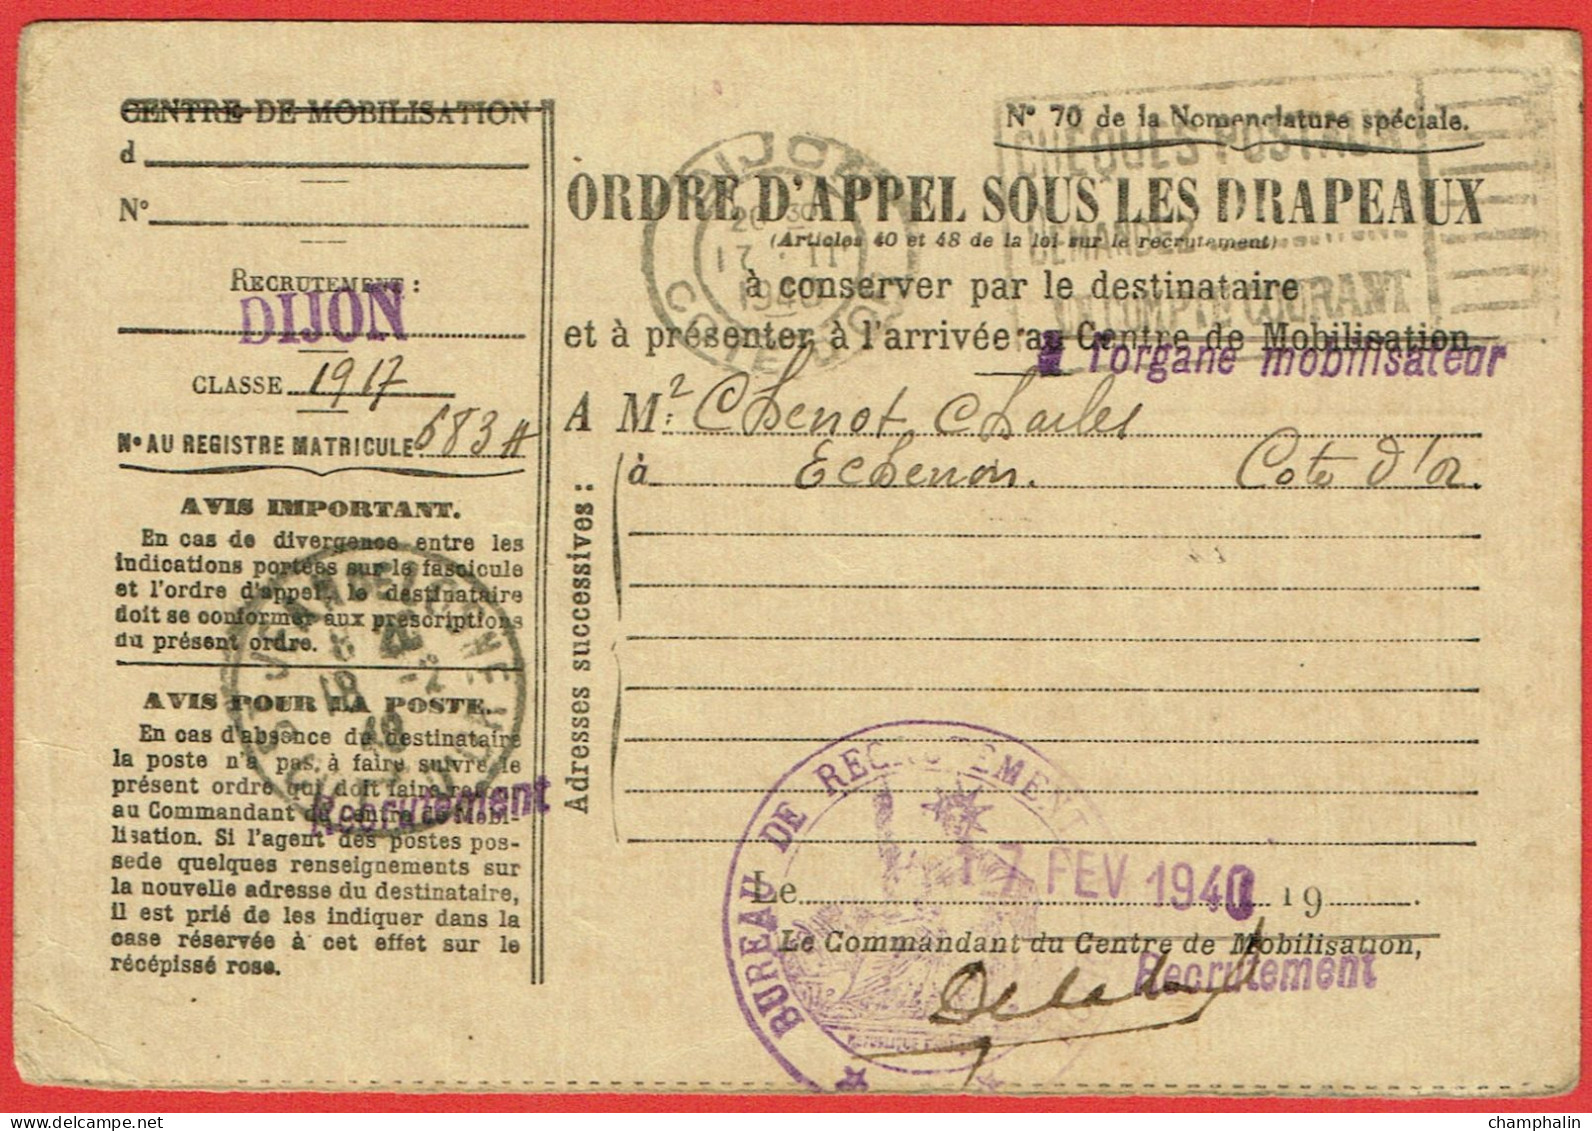 CENTRE DE MOBILISATION
d
N°
RECRUTEMENT :
DIJON
CLASSE 1917
N° AU REGISTRE MATRICULE: 683
AVIS IMPORTANT.
En cas de divergence entre les
indications portées sur le fascicule
et l'ordre d'appel, le destinataire
doit se conformer aux prescriptions
du présent ordre.
AVIS POUR LA POSTE.
En cas d'absence du destinataire
la poste n'a pas à faire suivre le
présent ordre qui doit faire retour
au Commandant du Centre de Mobi-
lisation. Si l'agent des postes pos-
sede quelques renseignements sur
la nouvelle adresse du destinataire,
il est prié de les indiquer dans la
case réservée à cet effet sur le
récépissé rose.
Recrutement
18 -2
40
N° 70 de la Nomenclature spéciale.
CHEQUES POSTAUX
DEMANDEZ
COMPTE COURANT
DIJON
20 30
17 · II
1940
COTE D'OR
ORDRE D'APPEL SOUS LES DRAPEAUX
(Articles 40 et 48 de la loi sur le recrutement)
à conserver par le destinataire
et à présenter à l'arrivée au Centre de Mobilisation.
l'organe mobilisateur
A M. Chenot Charles
à Echenon. Cote d'or.
Adresses successives :
BUREAU DE RECRUTEMENT
Le 17 FEV 1940 19 .
Le Commandant du Centre de Mobilisation,
Recrutement